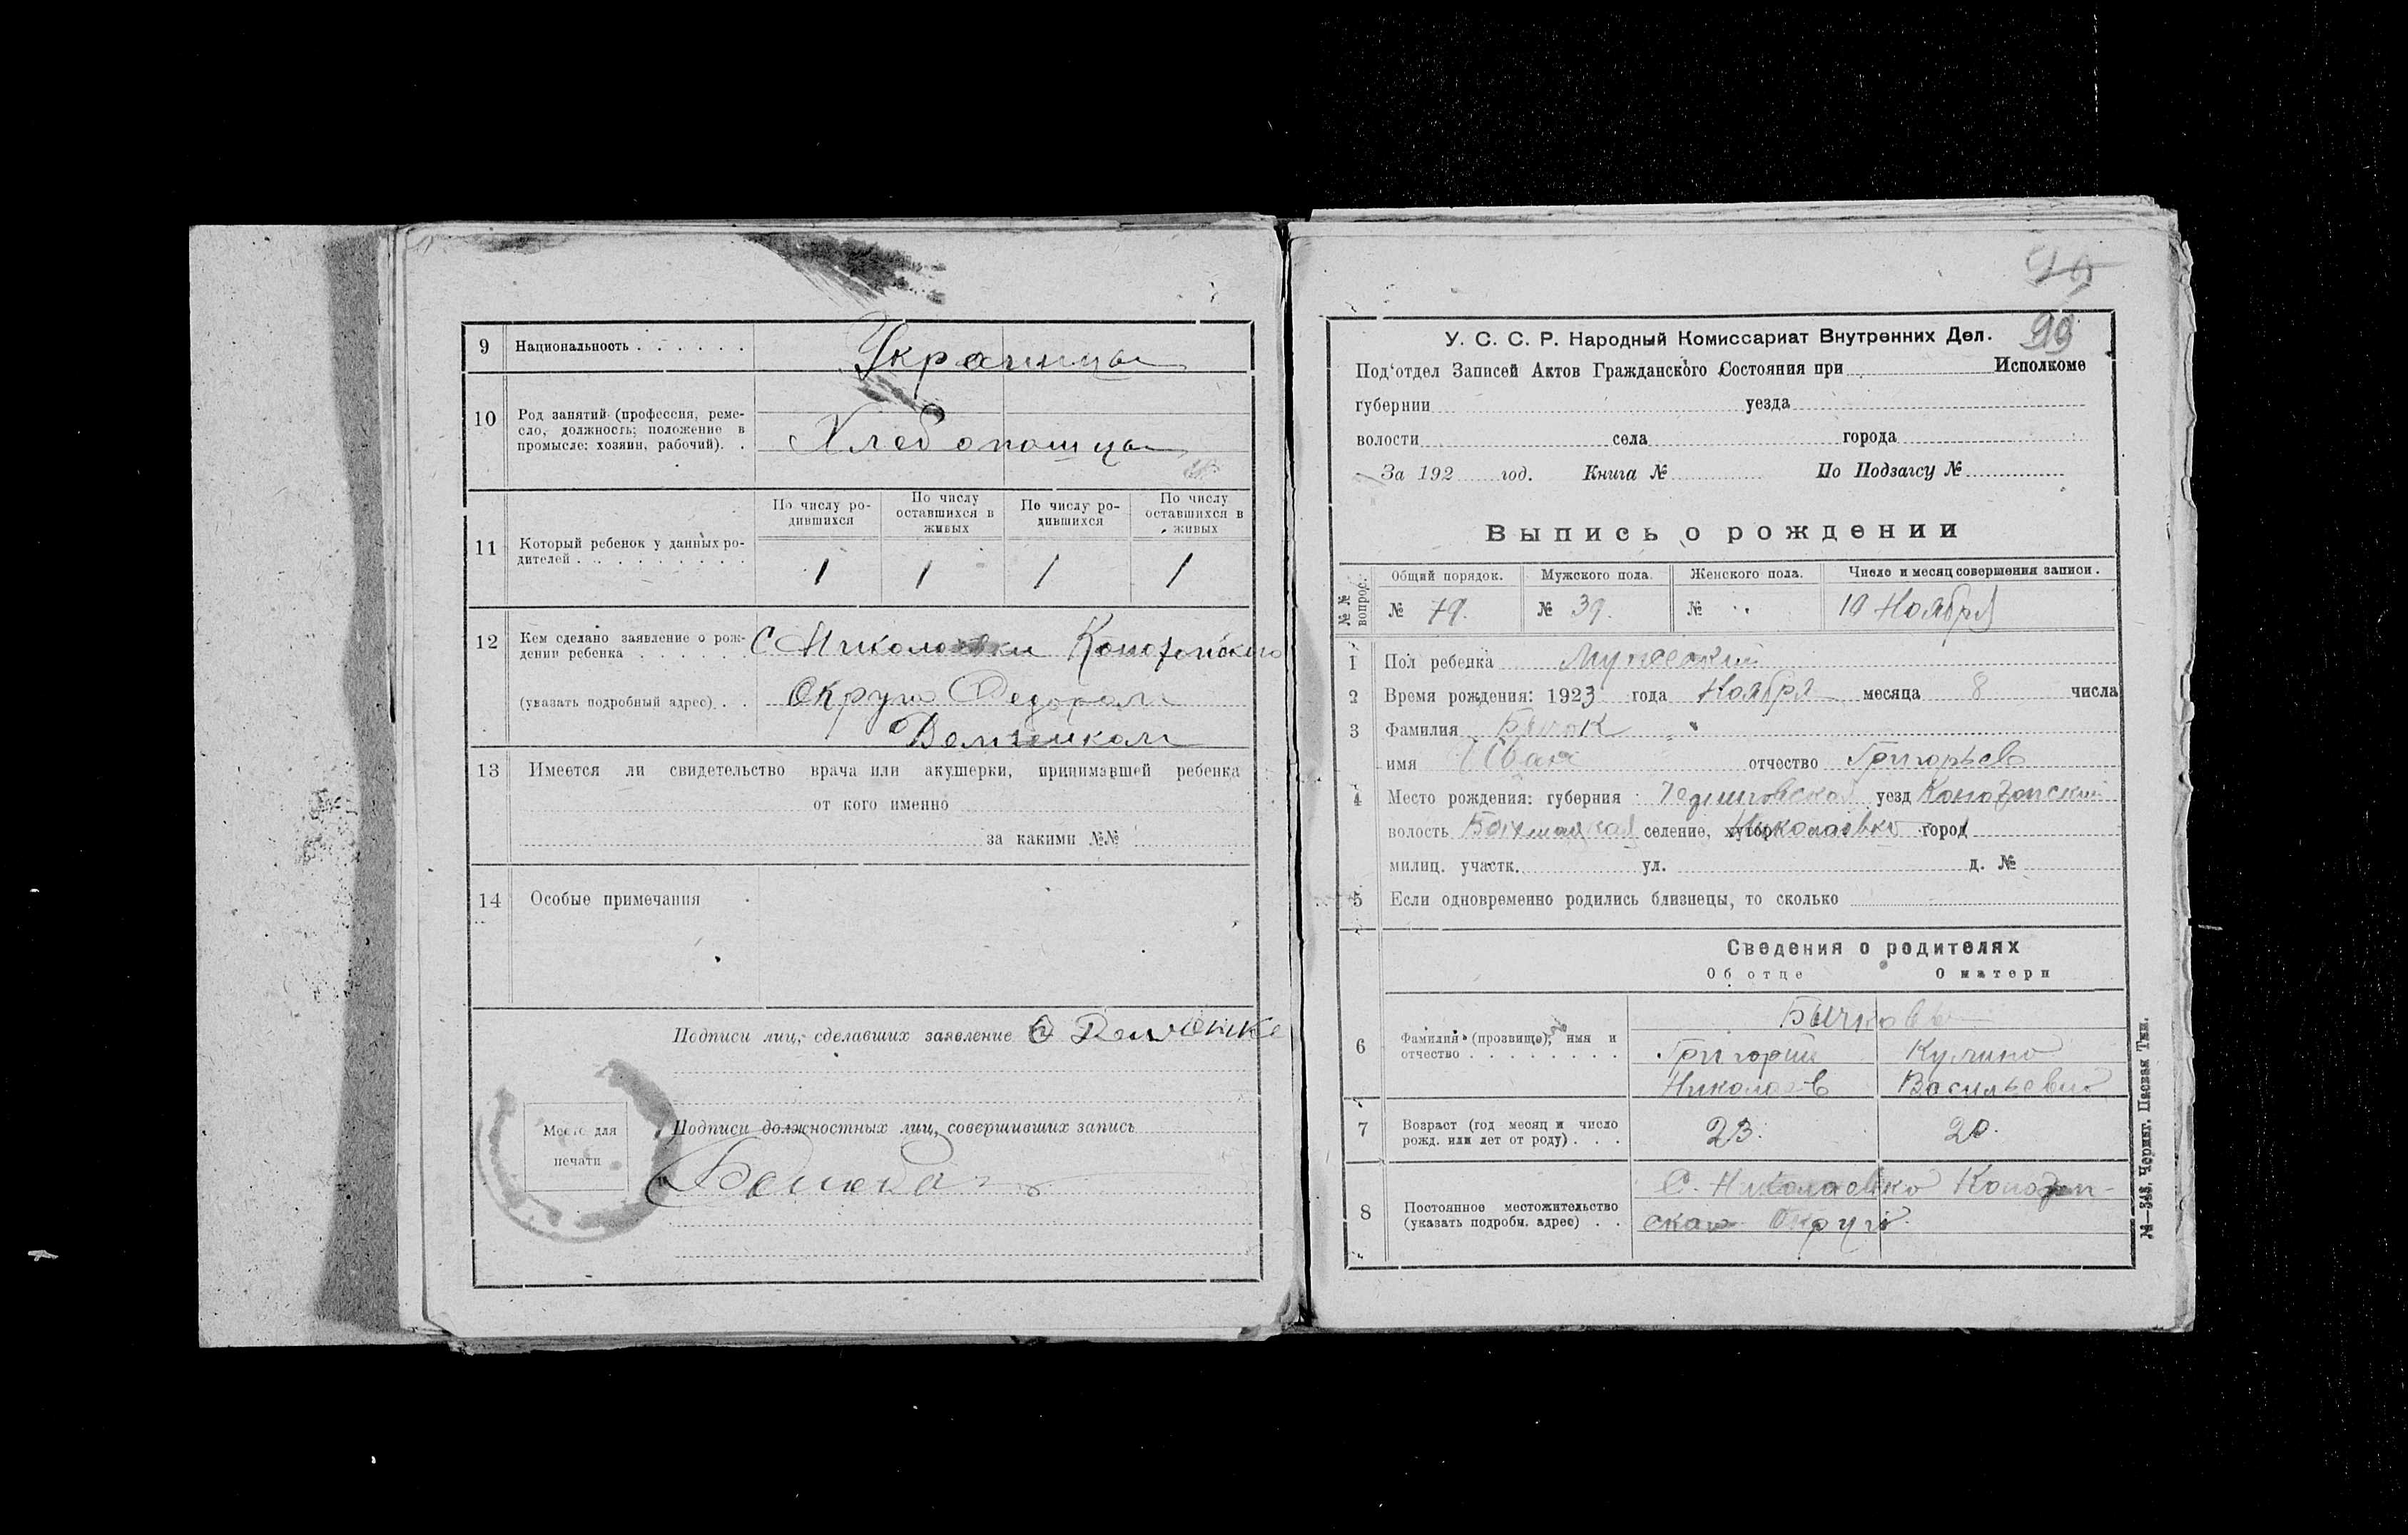 9 Национальность . . . . . . Украинцы
10 Род занятий (профессия, реме-
сло, должность; положение в
промысле: хозяин, рабочий). .
Хлебопашцы
По числу ро-
дившихся
По числу
оставшихся в
живых
По числу ро-
дившихся
По числу
оставшихся в
живых
11 Который ребенок у данных ро-
дителей . . . . . . . . . .
1 1 1 1
12 Кем сделано заявление о рож-
дении ребенка . . . . . .
С Николаевки Конотопского
(указать подробный адрес) . .
Округа Федором
13 Имеется ли свидетельство врача или акушерки, принимавшей ребенка
от кого именно
за какими №№
14 Особые примечания
Подписи лиц, сделавших заявление
Место для
печати
Подписи должностных лиц, совершивших запись
99
У. С. С. Р. Народный Комиссариат Внутренних Дел.
Под'отдел Записей Актов Гражданского Состояния при Исполкоме
губернии уезда
волости села города
За 192 год. Книга № По Подзагсу №
Выпись о рождении
№ №
вопрос.
Общий порядок. Мужского пола. Женского пола. Число и месяц совершения записи.
№ 79. № 39. № 10 Ноября
1 Пол ребенка Мужеский
2 Время рождения: 1923 года Ноября месяца 8 числа
3 Фамилия Бычок
имя Иван отчество Григорьев
4 Место рождения: губерния Черниговская уезд Конотопский
волость Бахмацкая селение, хутор Николаевка город
милиц. участк. ул. д. №
5 Если одновременно родились близнецы, то сколько
Сведения о родителях
Об отце О матери
6 Фамилия (прозвище), имя и
отчество . . . . . . . .
Григорий Кулина
Николаев Васильевна
7 Возраст (год месяц и число
рожд. или лет от роду) . . .
23. 20.
8 Постоянное местожительство
(указать подробн. адрес) . .
С. Николаевка Конотоп-
ская Округа.
№—548. Черниг. Паевая Тип.